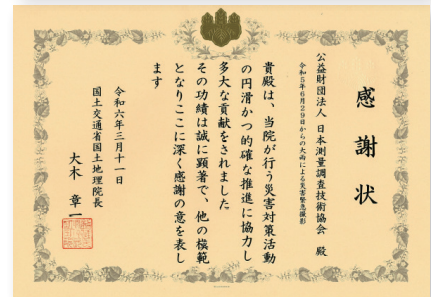 感謝状
公益財団法人 日本測量調査技術協会 殿
令和5年6月29日からの大雨による災害緊急撮影
貴殿は、当院が行う災害対策活動
の円滑かつ的確な推進に協力し
多大な貢献をされました
その功績は誠に顕著で、他の模範
となりここに深く感謝の意を表し
ます
令和六年三月十一日
国土交通省国土地理院長
大木 章一